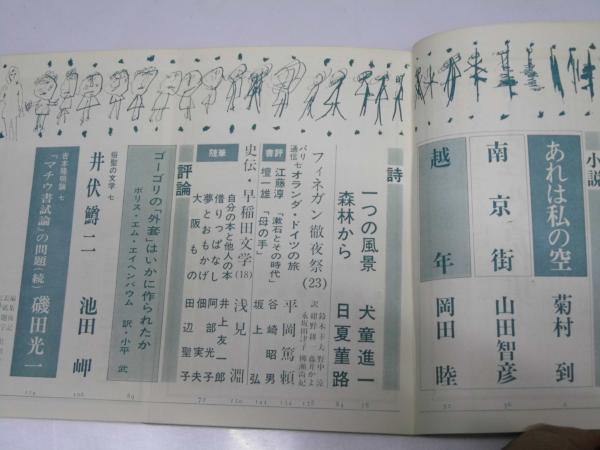 小説
あれは私の空
菊村到
南京街
山田智彦
越年
岡田睦
詩
一つの風景
犬童進一
森林から
日夏菫路
フィネガン徹夜祭(23)
パリ通信七
オランダ・ドイツの旅
平岡篤頼
書評
江藤淳「漱石とその時代」
谷崎昭男
壇一雄「母の手」
坂上弘
史伝・早稲田文学(18)
浅見淵
随筆
自分の本と他人の本
井上友一郎
借りっぱなし
阿部光子
夢とおもかげ
佃実夫
大阪もの
田辺聖子
評論
ゴーゴリの「外套」はいかに作られたか
ボリス・エム・エイヘンバウム
訳・小平武
俗聖の文学 七
井伏鱒二
池田岬
吉本隆明論 七
「マチウ書試論」の問題(続)
磯田光一